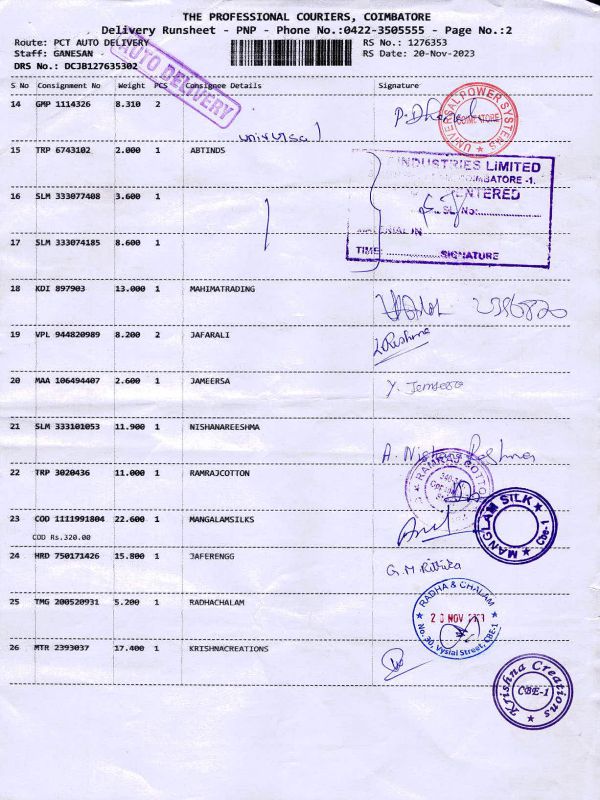 THE PROFESSIONAL COURIERS, COIMBATORE
Delivery Runsheet - PNP - Phone No.:0422-3505555 - Page No.:2
Route: PCT AUTO DELIVERY RS No.: 1276353
Staff: GANESAN RS Date: 20-Nov-2023
DRS No.: DCJB127635302
AUTO DELIVERY
S No Consignment No Weight PCS Consignee Details Signature
14 GMP 1114326 8.310 2
universal
UNIVERSAL POWER SYSTEMS COIMBATORE
15 TRP 6743102 2.000 1 ABTINDS
INDUSTRIES LIMITED
COIMBATORE -1.
ENTERED
SL. NO:
16 SLM 333077408 3.600 1
MATERIAL IN
TIME: SIGNATURE
17 SLM 333074185 8.600 1
18 KDI 897903 13.000 1 MAHIMATRADING
19 VPL 944820989 8.200 2 JAFARALI
20 MAA 106494407 2.600 1 JAMEERSA
Y. Jameera
21 SLM 333101053 11.900 1 NISHANAREESHMA
22 TRP 3020436 11.000 1 RAMRAJCOTTON
RAMRAJ COTTON
23 COD 1111991804 22.600 1 MANGALAMSILKS
COD Rs.320.00
MANGLAM SILK CBE-1
24 HRD 750171426 15.800 1 JAFERENGG
G.M Rithika
25 TMG 200520931 5.200 1 RADHACHALAM
RADHA & CHALAM
No. 30, Vysial Street, CBE-1
26 MTR 2393037 17.400 1 KRISHNACREATIONS
Krishna Creations CBE-1